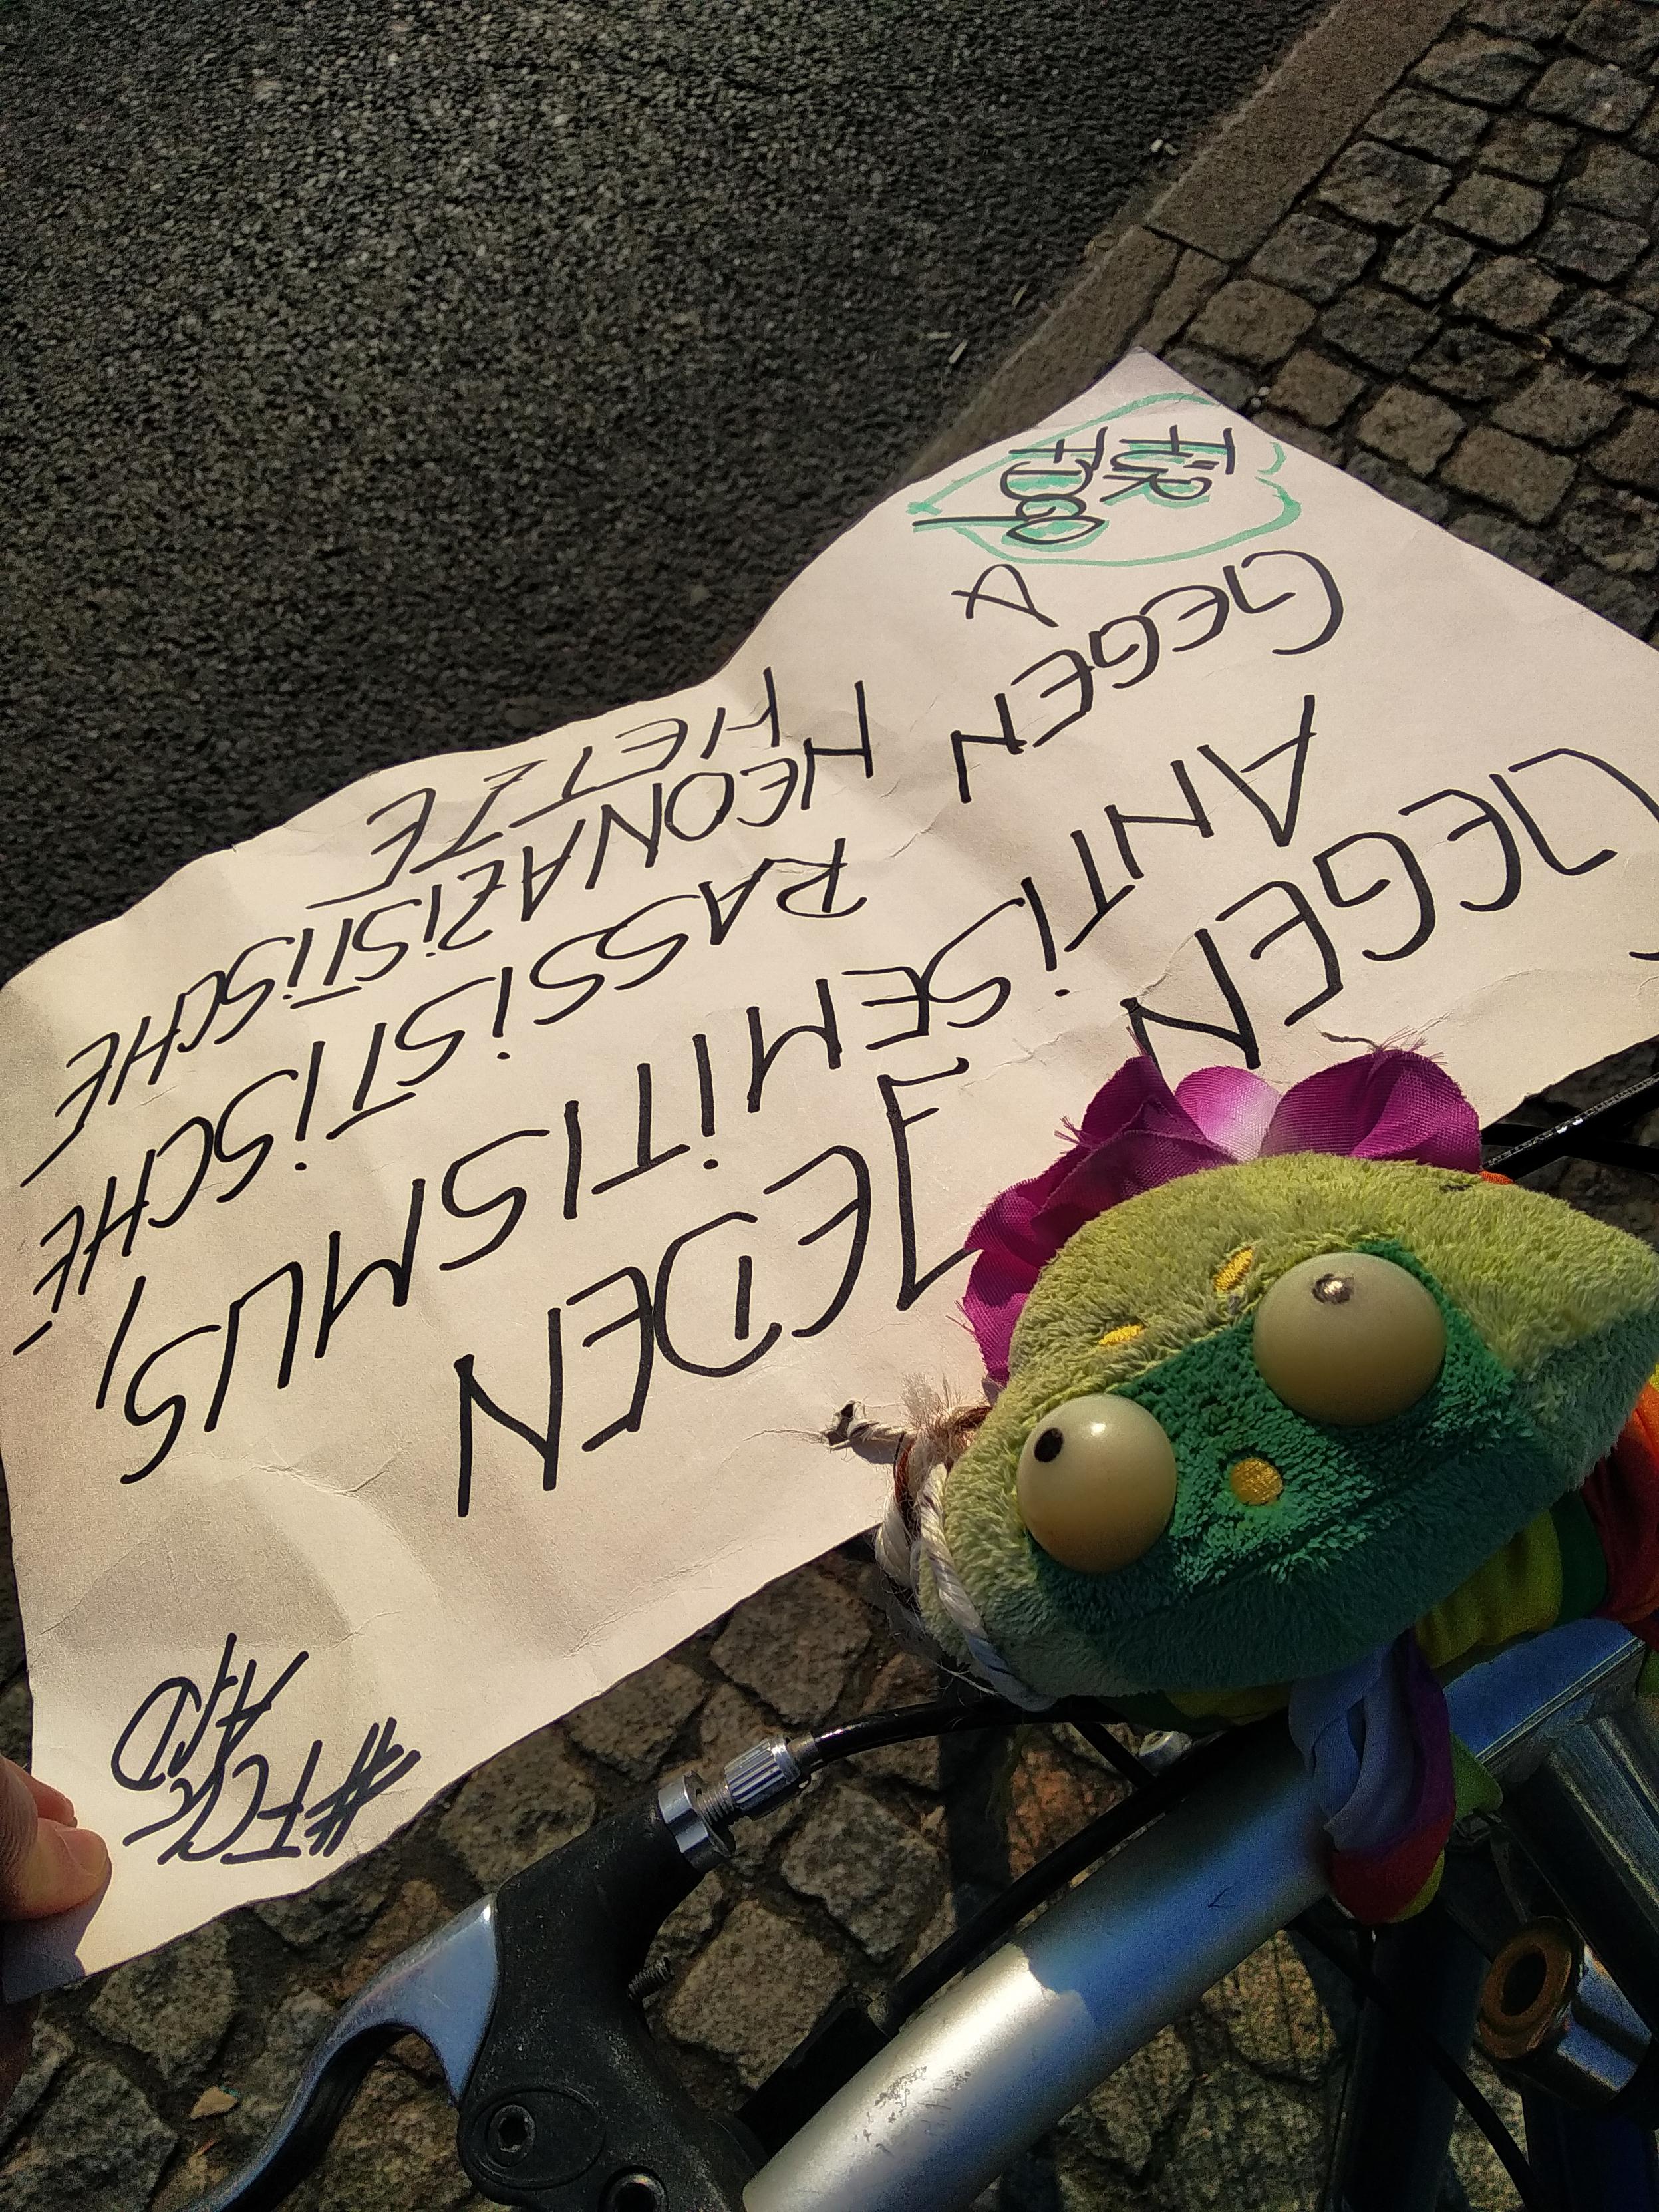 #FCK
AFD
GEGEN JEDEN
ANTISEMITISMUS,
GEGEN RASSISTISCHE,
NEONAZISTISCHE
& HETZE
FÜR
FDGO